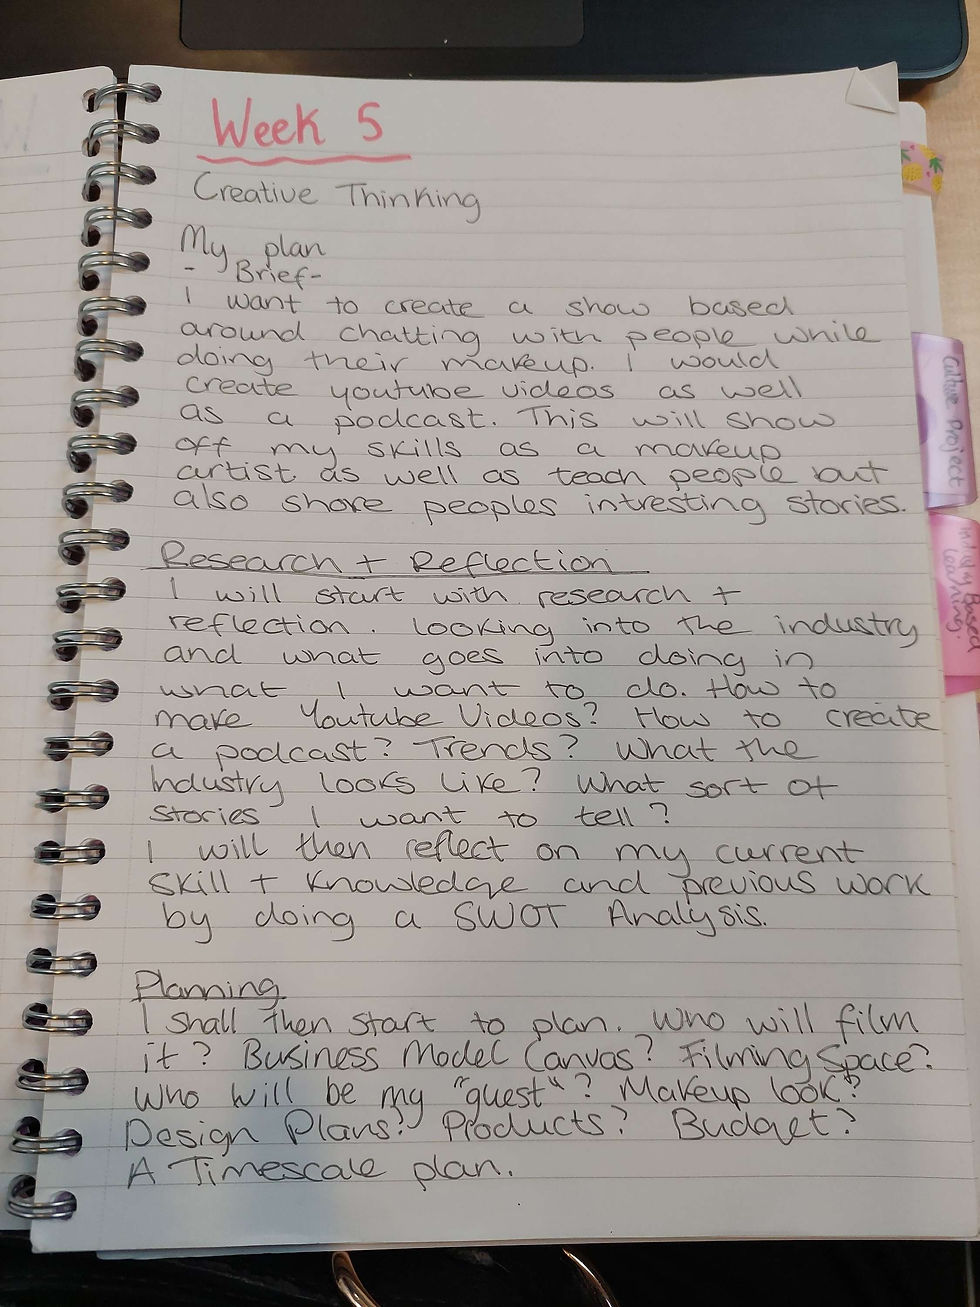 Week 5
Creative Thinking
My plan
- Brief-
I want to create a show based
around chatting with people while
doing their makeup. I would
create youtube videos as well
as a podcast. This will show
off my skills as a makeup
artist as well as teach people but
also share peoples intresting stories.
Research + Reflection
I will start with research +
reflection. looking into the industry
and what goes into doing in
what I want to do. How to
make Youtube Videos? How to create
a podcast? Trends? What the
Industry looks like? What sort of
stories I want to tell?
I will then reflect on my current
skill + knowledge and previous work
by doing a SWOT Analysis.
Planning
I shall then start to plan. Who will film
it? Business Model Canvas? Filming Space?
Who will be my "guest"? Makeup look?
Design Plans? Products? Budget?
A Timescale plan.
Culture Project
Based